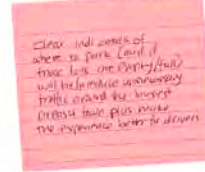 Clear indicators of
where to park (and if
those lots are empty/full)
will help reduce unnecessary
traffic around the busiest
times plus make
the experience better for drivers